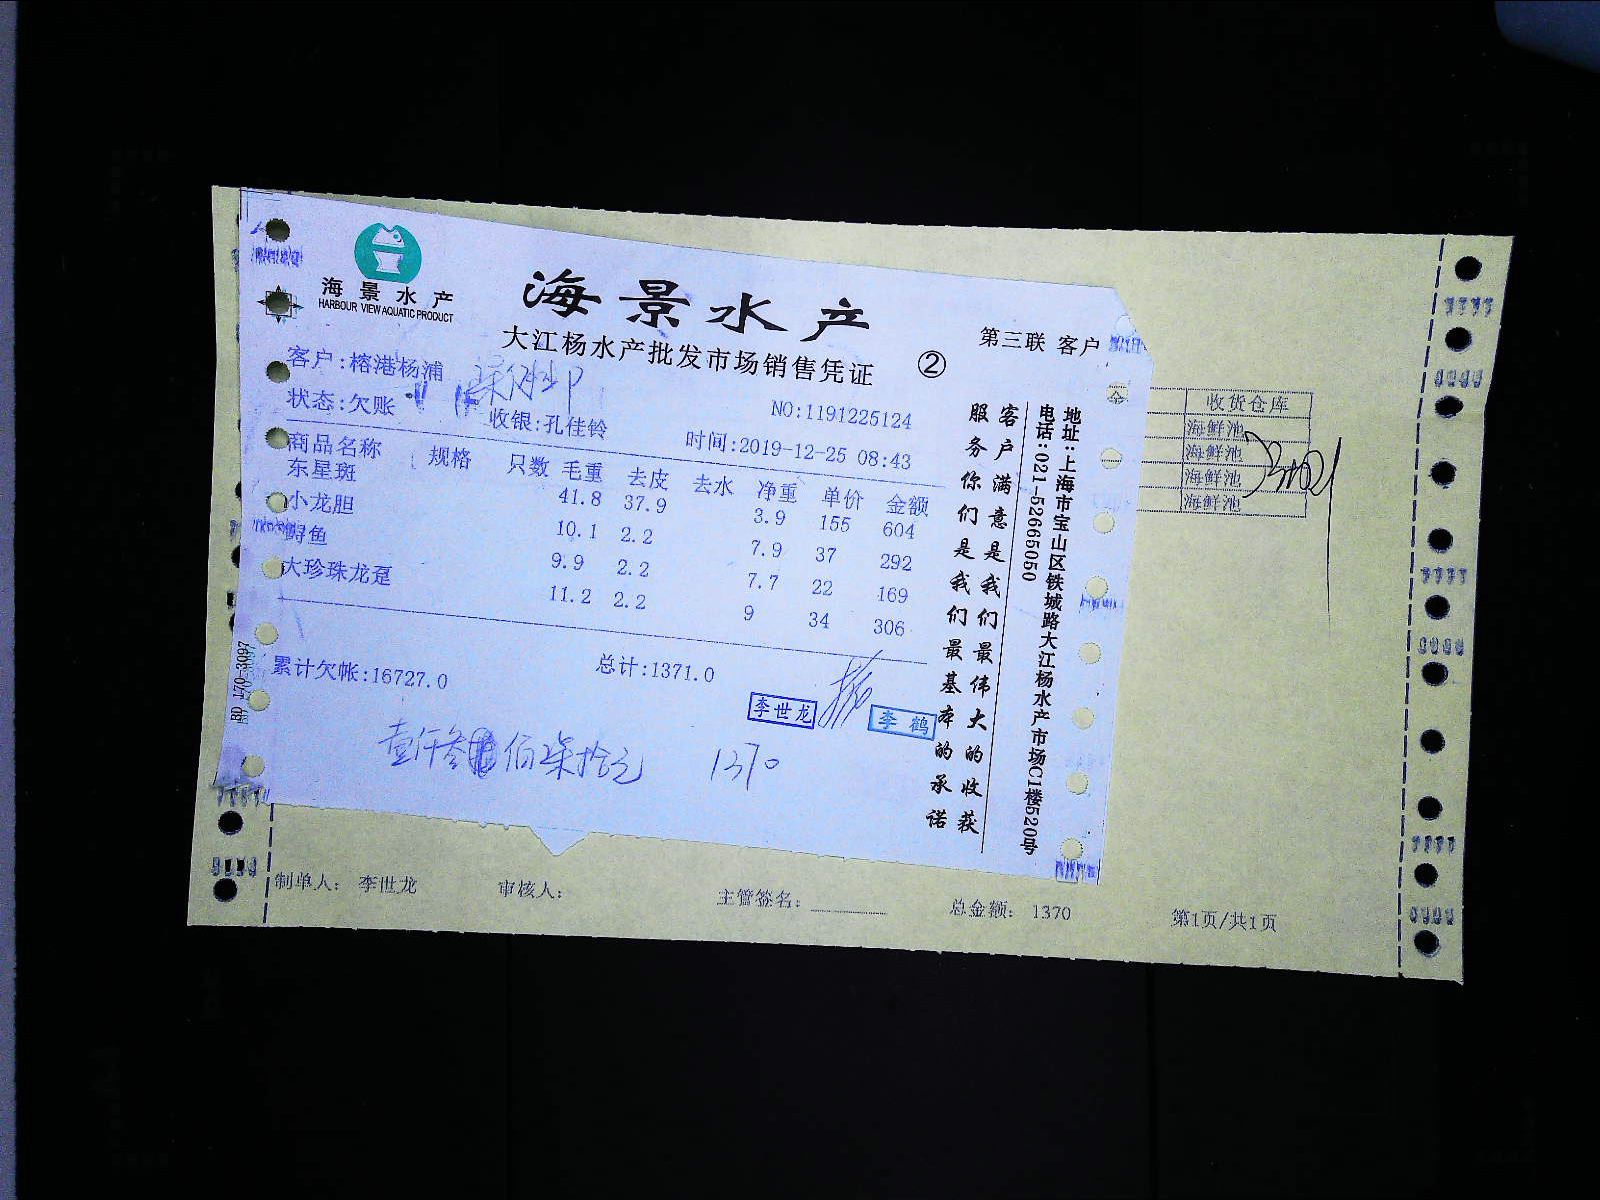 海景水产
HARBOUR VIEW AQUATIC PRODUCT
海景水产
大江杨水产批发市场销售凭证
②
第三联 客户
客户:榕港杨浦
状态:欠账
收银:孔佳铃
NO:1191225124
时间:2019-12-25 08:43
商品名称 规格 只数 毛重 去皮 去水 净重 单价 金额
东星斑 41.8 37.9 3.9 155 604
小龙胆 10.1 2.2 7.9 37 292
鲟鱼 9.9 2.2 7.7 22 169
大珍珠龙趸 11.2 2.2 9 34 306
累计欠帐:16727.0
总计:1371.0
李世龙
李鹤
壹仟叁佰柒拾元 1370
客户满意是我们最伟大的收获
服务你们是我们最基本的承诺
地址:上海市宝山区铁城路大江杨水产市场C1楼520号
电话:021-52665050
BD 170-3097
收货仓库
海鲜池
海鲜池
海鲜池
海鲜池
制单人: 李世龙
审核人:
主管签名:
总金额: 1370
第1页/共1页